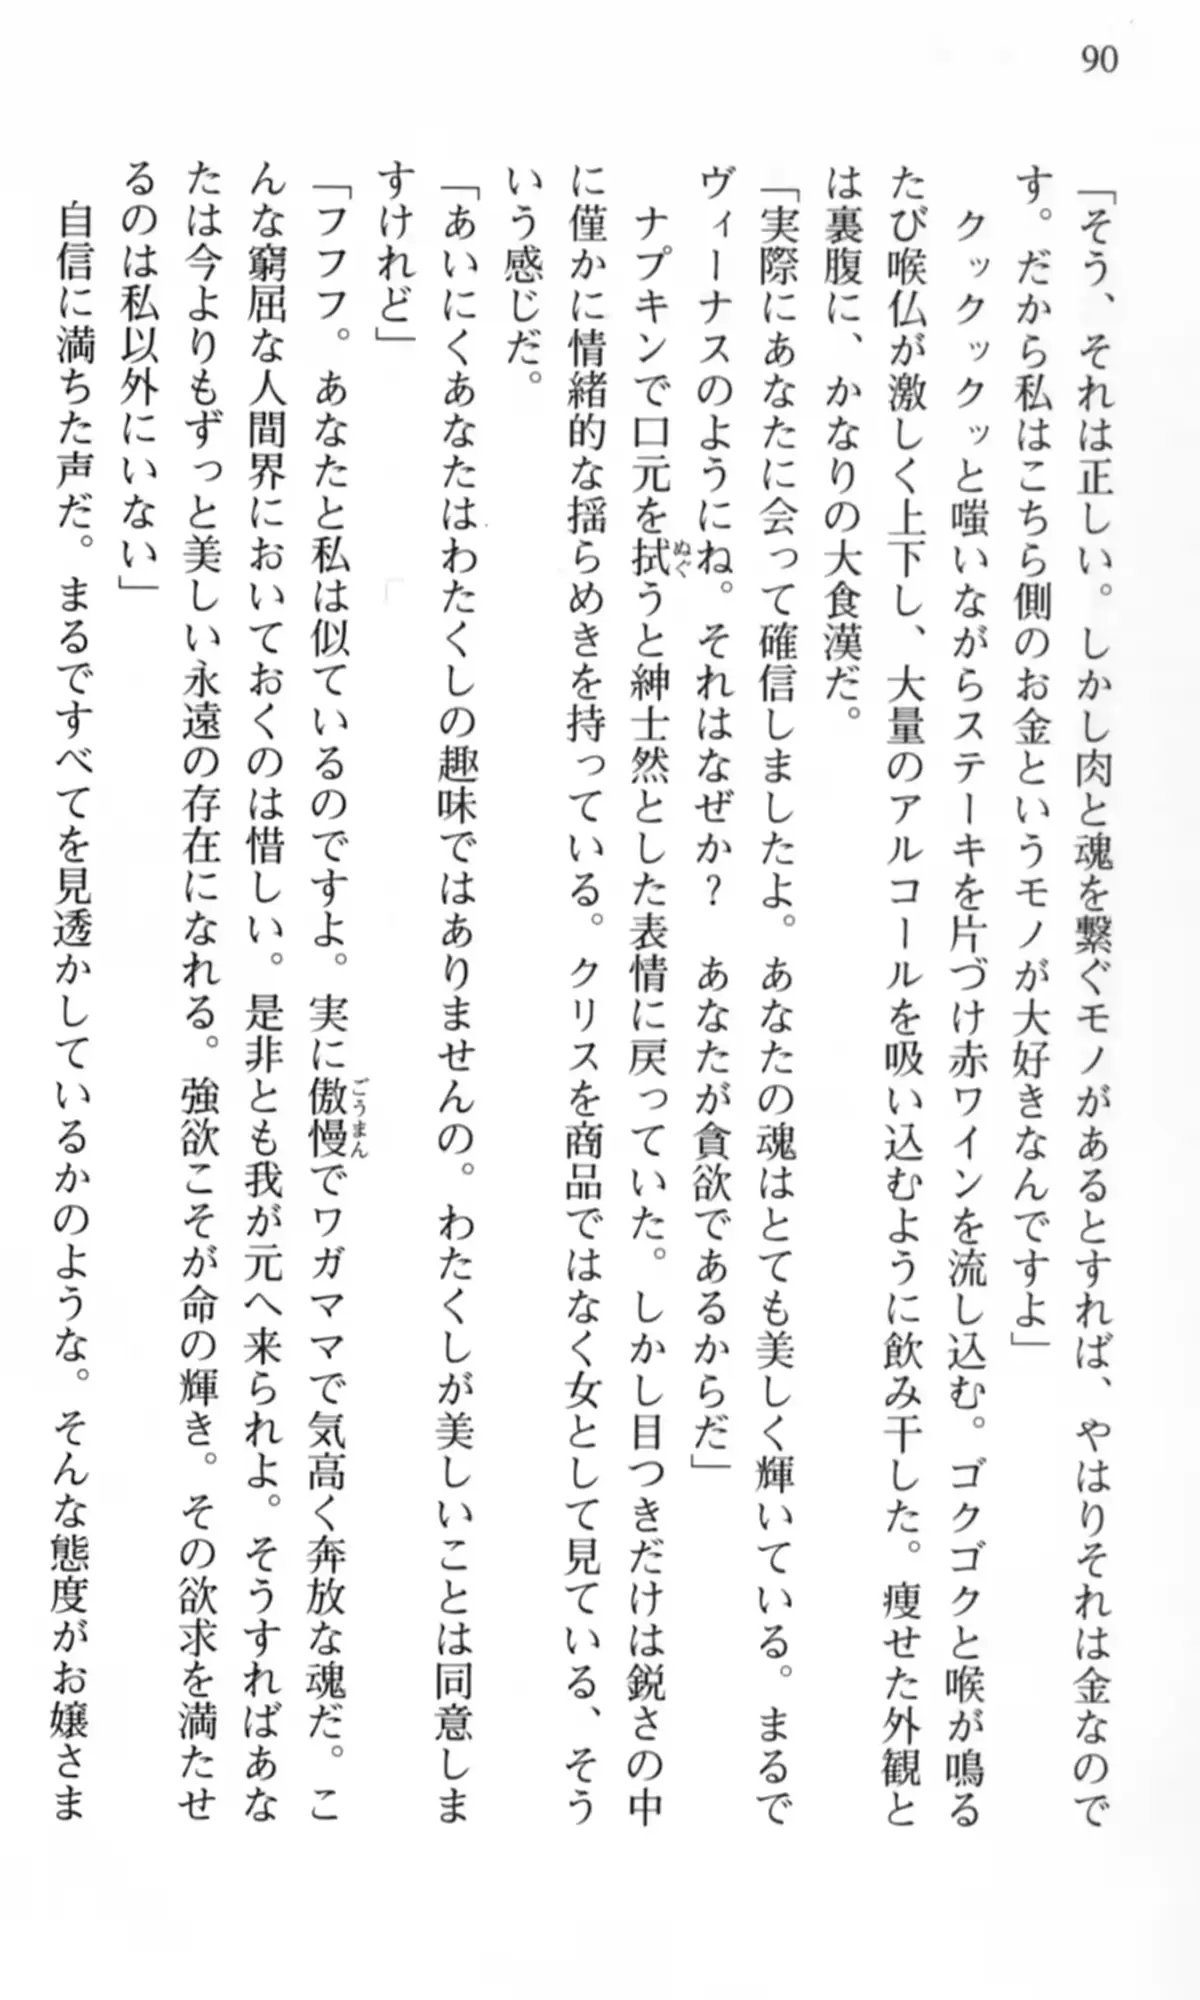 90
「そう、それは正しい。しかし肉と魂を繋ぐモノがあるとすれば、やはりそれは金なので
す。だから私はこちら側のお金というモノが大好きなんですよ」
　クックックッと嗤いながらステーキを片づけ赤ワインを流し込む。ゴクゴクと喉が鳴る
たび喉仏が激しく上下し、大量のアルコールを吸い込むように飲み干した。痩せた外観と
は裏腹に、かなりの大食漢だ。
「実際にあなたに会って確信しましたよ。あなたの魂はとても美しく輝いている。まるで
ヴィーナスのようにね。それはなぜか？　あなたが貪欲であるからだ」
　ナプキンで口元を拭ぬぐうと紳士然とした表情に戻っていた。しかし目つきだけは鋭さの中
に僅かに情緒的な揺らめきを持っている。クリスを商品ではなく女として見ている、そう
いう感じだ。
「あいにくあなたはわたくしの趣味ではありませんの。わたくしが美しいことは同意しま
すけれど」
「フフフ。あなたと私は似ているのですよ。実に傲慢ごうまんでワガママで気高く奔放な魂だ。こ
んな窮屈な人間界においておくのは惜しい。是非とも我が元へ来られよ。そうすればあな
たは今よりもずっと美しい永遠の存在になれる。強欲こそが命の輝き。その欲求を満たせ
るのは私以外にいない」
　自信に満ちた声だ。まるですべてを見透かしているかのような。そんな態度がお嬢さま